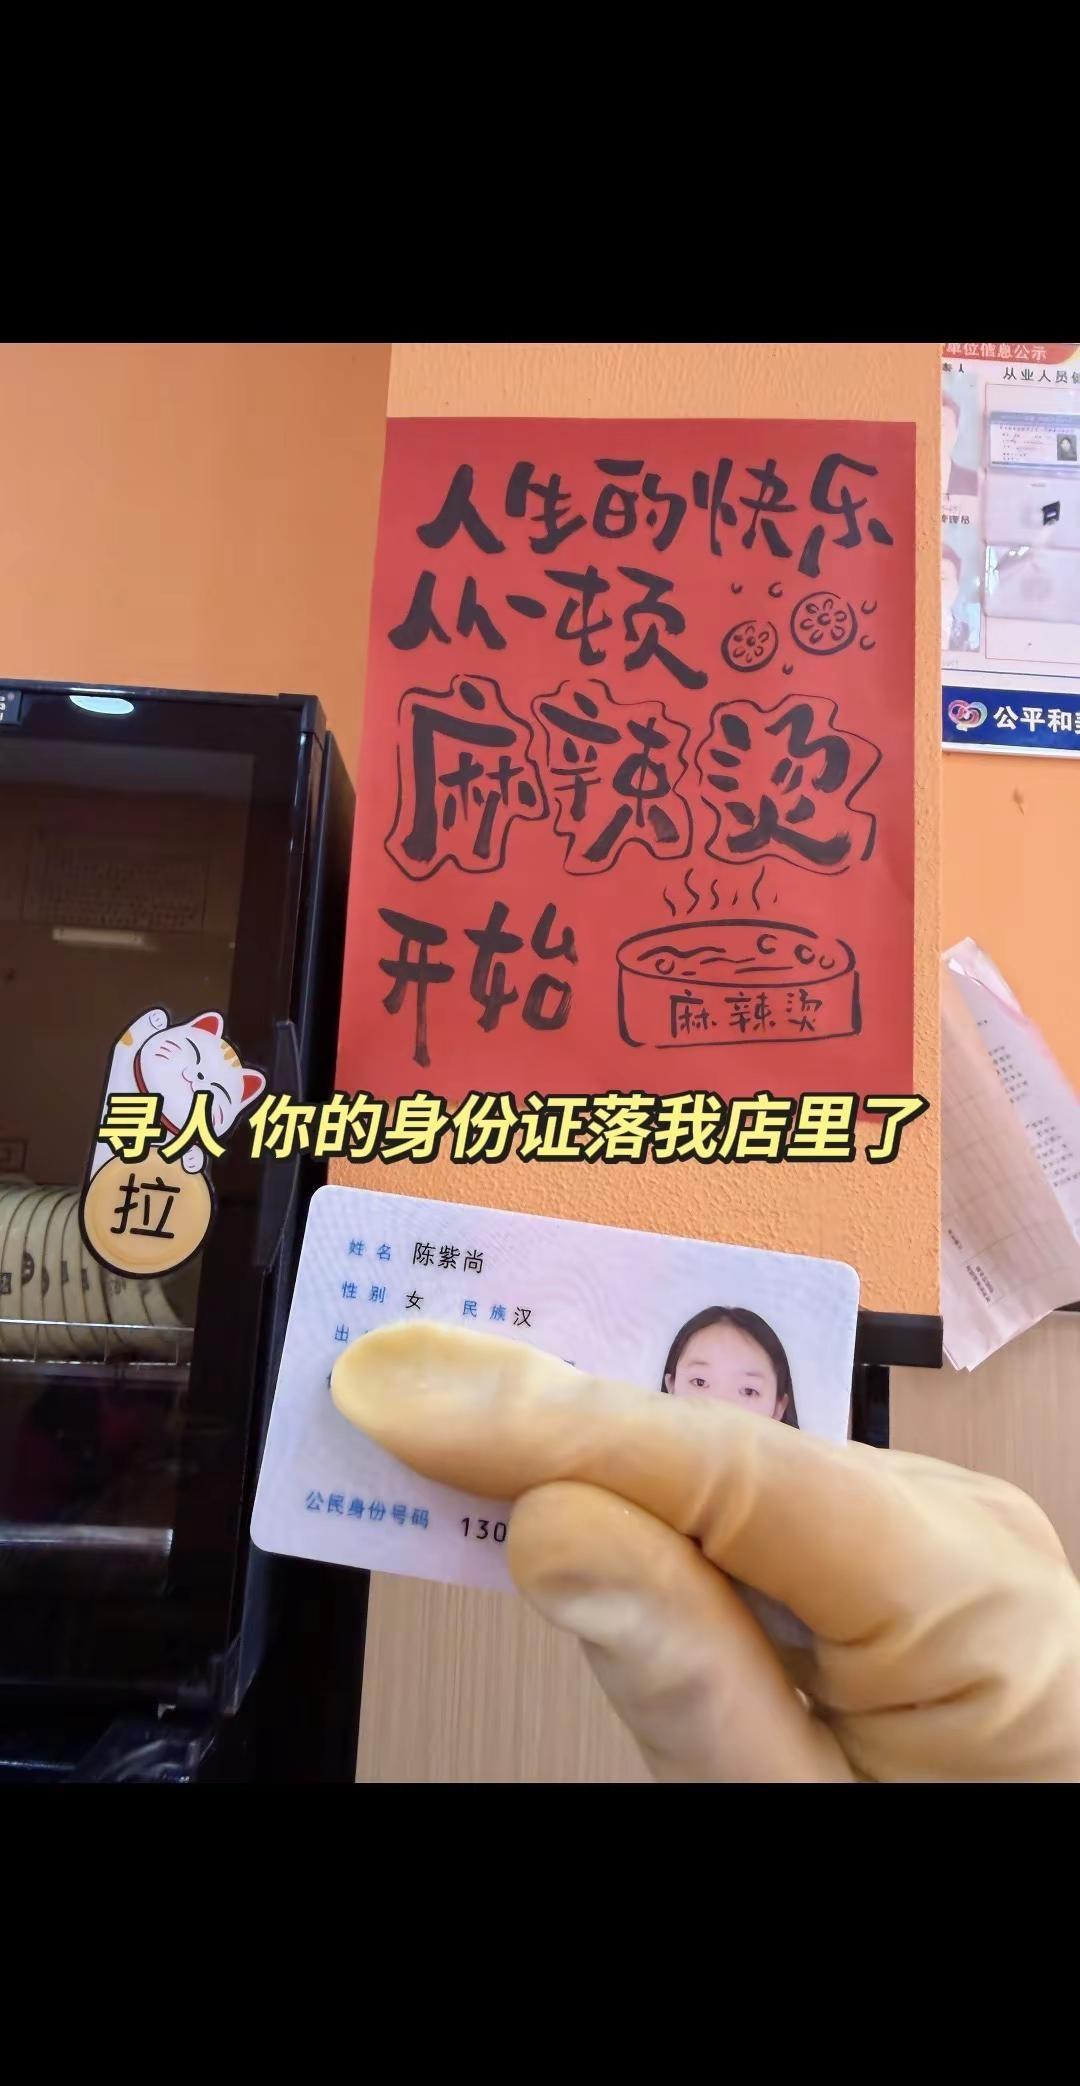 单位信息公示
从业人员健
人生的快乐
从一顿
麻辣烫
开始
麻辣烫
公平和
寻人 你的身份证落我店里了
拉
姓名 陈紫尚
性别 女 民族 汉
出
公民身份号码 130